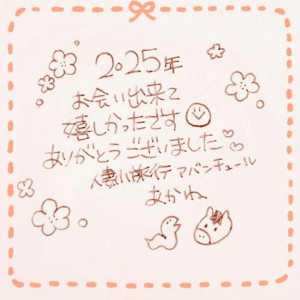 2025年
お会い出来て
嬉しかったです
ありがとうございました
人妻小旅行アバンチュール
あかね